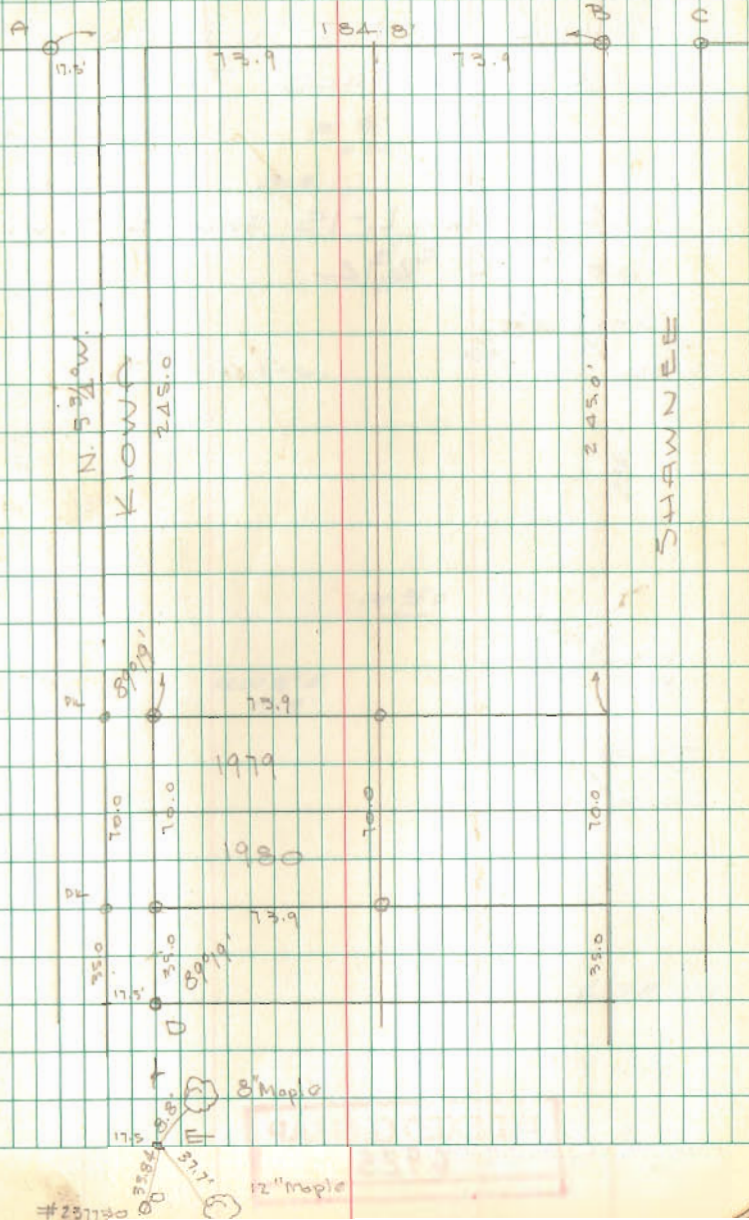 A
184.8'
B
C
17.5'
73.9
73.9
N. 5 3/4° W.
KIOWA
245.0
245.0'
SHAWNEE
89°19'
PK
73.9
1979
70.0
70.0
70.0
70.0
1980
PK
73.9
35.0
35.0
89°19'
35.0
17.5'
D
8" Maple
8.8'
17.5
E
37.7'
33.84
12" Maple